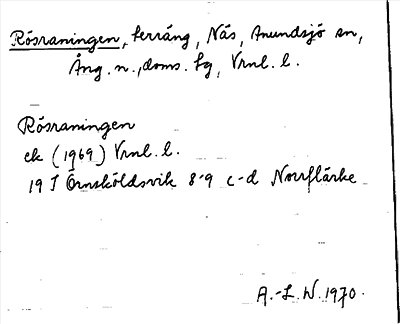 Rösraningen, terräng, Näs, Anundsjö sn,
Ång. n., doms. lg, Vrnl. l.
Rösraningen
ek (1969) Vrnl. l.
19 I Örnsköldsvik 8-9 c-d Norrflärke
A.-L. W. 1970.